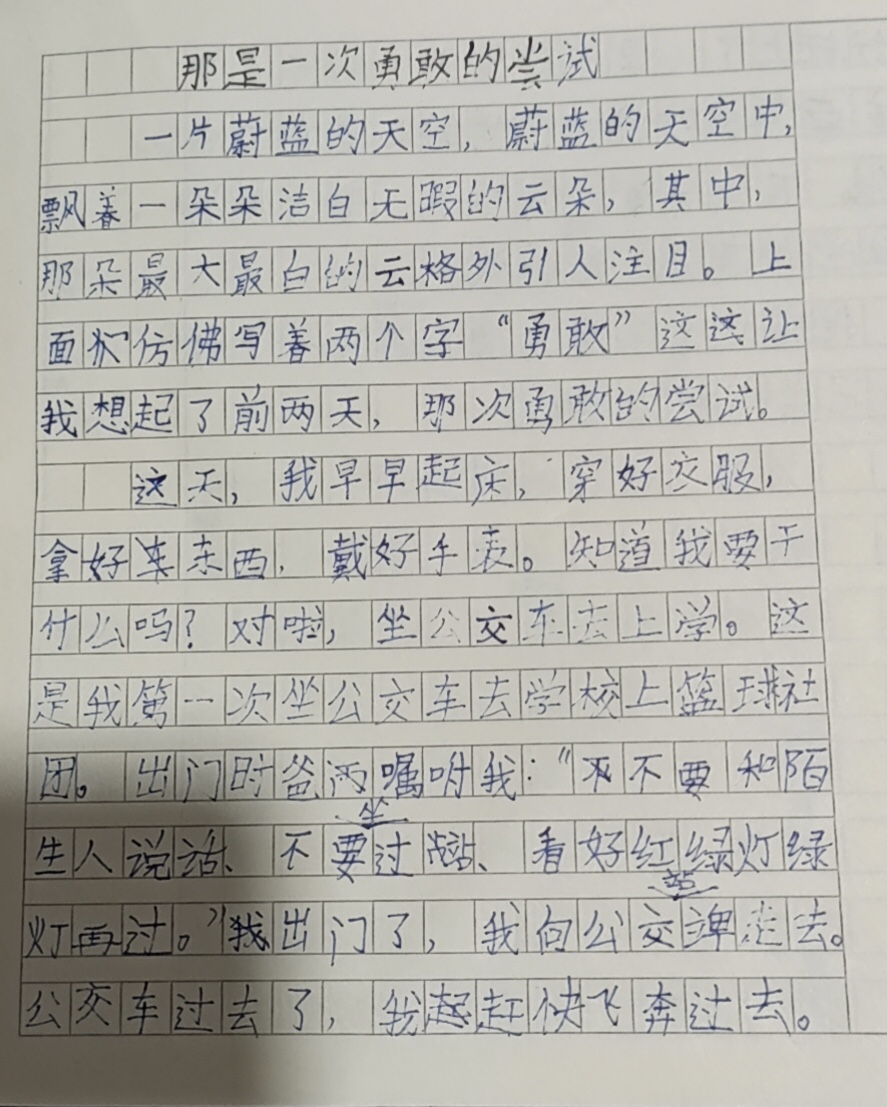 那是一次勇敢的尝试
一片蔚蓝的天空，蔚蓝的天空中，
飘着一朵朵洁白无暇的云朵，其中，
那朵最大最白的云格外引人注目。上
面仿佛写着两个字“勇敢”这这让
我想起了前两天，那次勇敢的尝试。
这天，我早早起床，穿好衣服，
拿好东西，戴好手表。知道我要干
什么吗？对啦，坐公交车去上学。这
是我第一次坐公交车去学校上篮球社
团。出门时爸妈嘱咐我：“不要和陌
生人说话、不要坐过站、看好红绿灯绿
灯再过。”我出门了，我向公交站牌走去。
公交车过去了，我赶快飞奔过去。